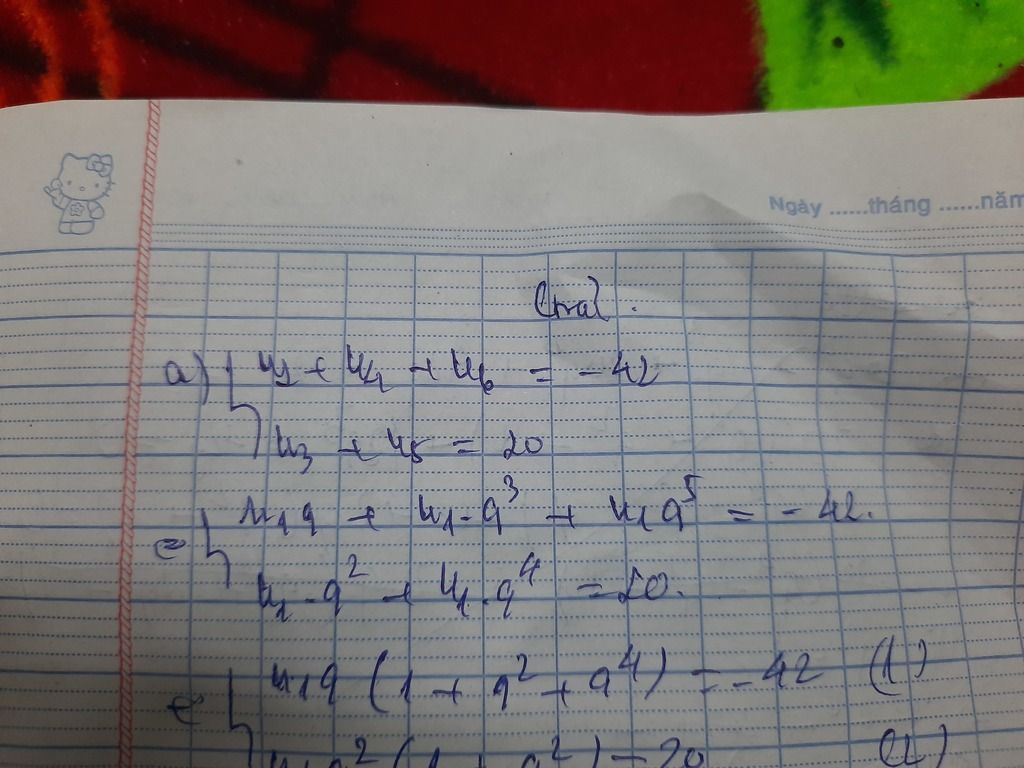 Ngày ......tháng ......năm
a) { u2 + u4 + u6 = - 42
u3 + u5 = 20
⇔ { u1q + u1.q³ + u1q⁵ = - 42.
u1.q² + u1.q⁴ = 20.
⇔ { u1q (1 + q² + q⁴) = - 42 (1)
u1q² (1 + q²) = 20 (2)